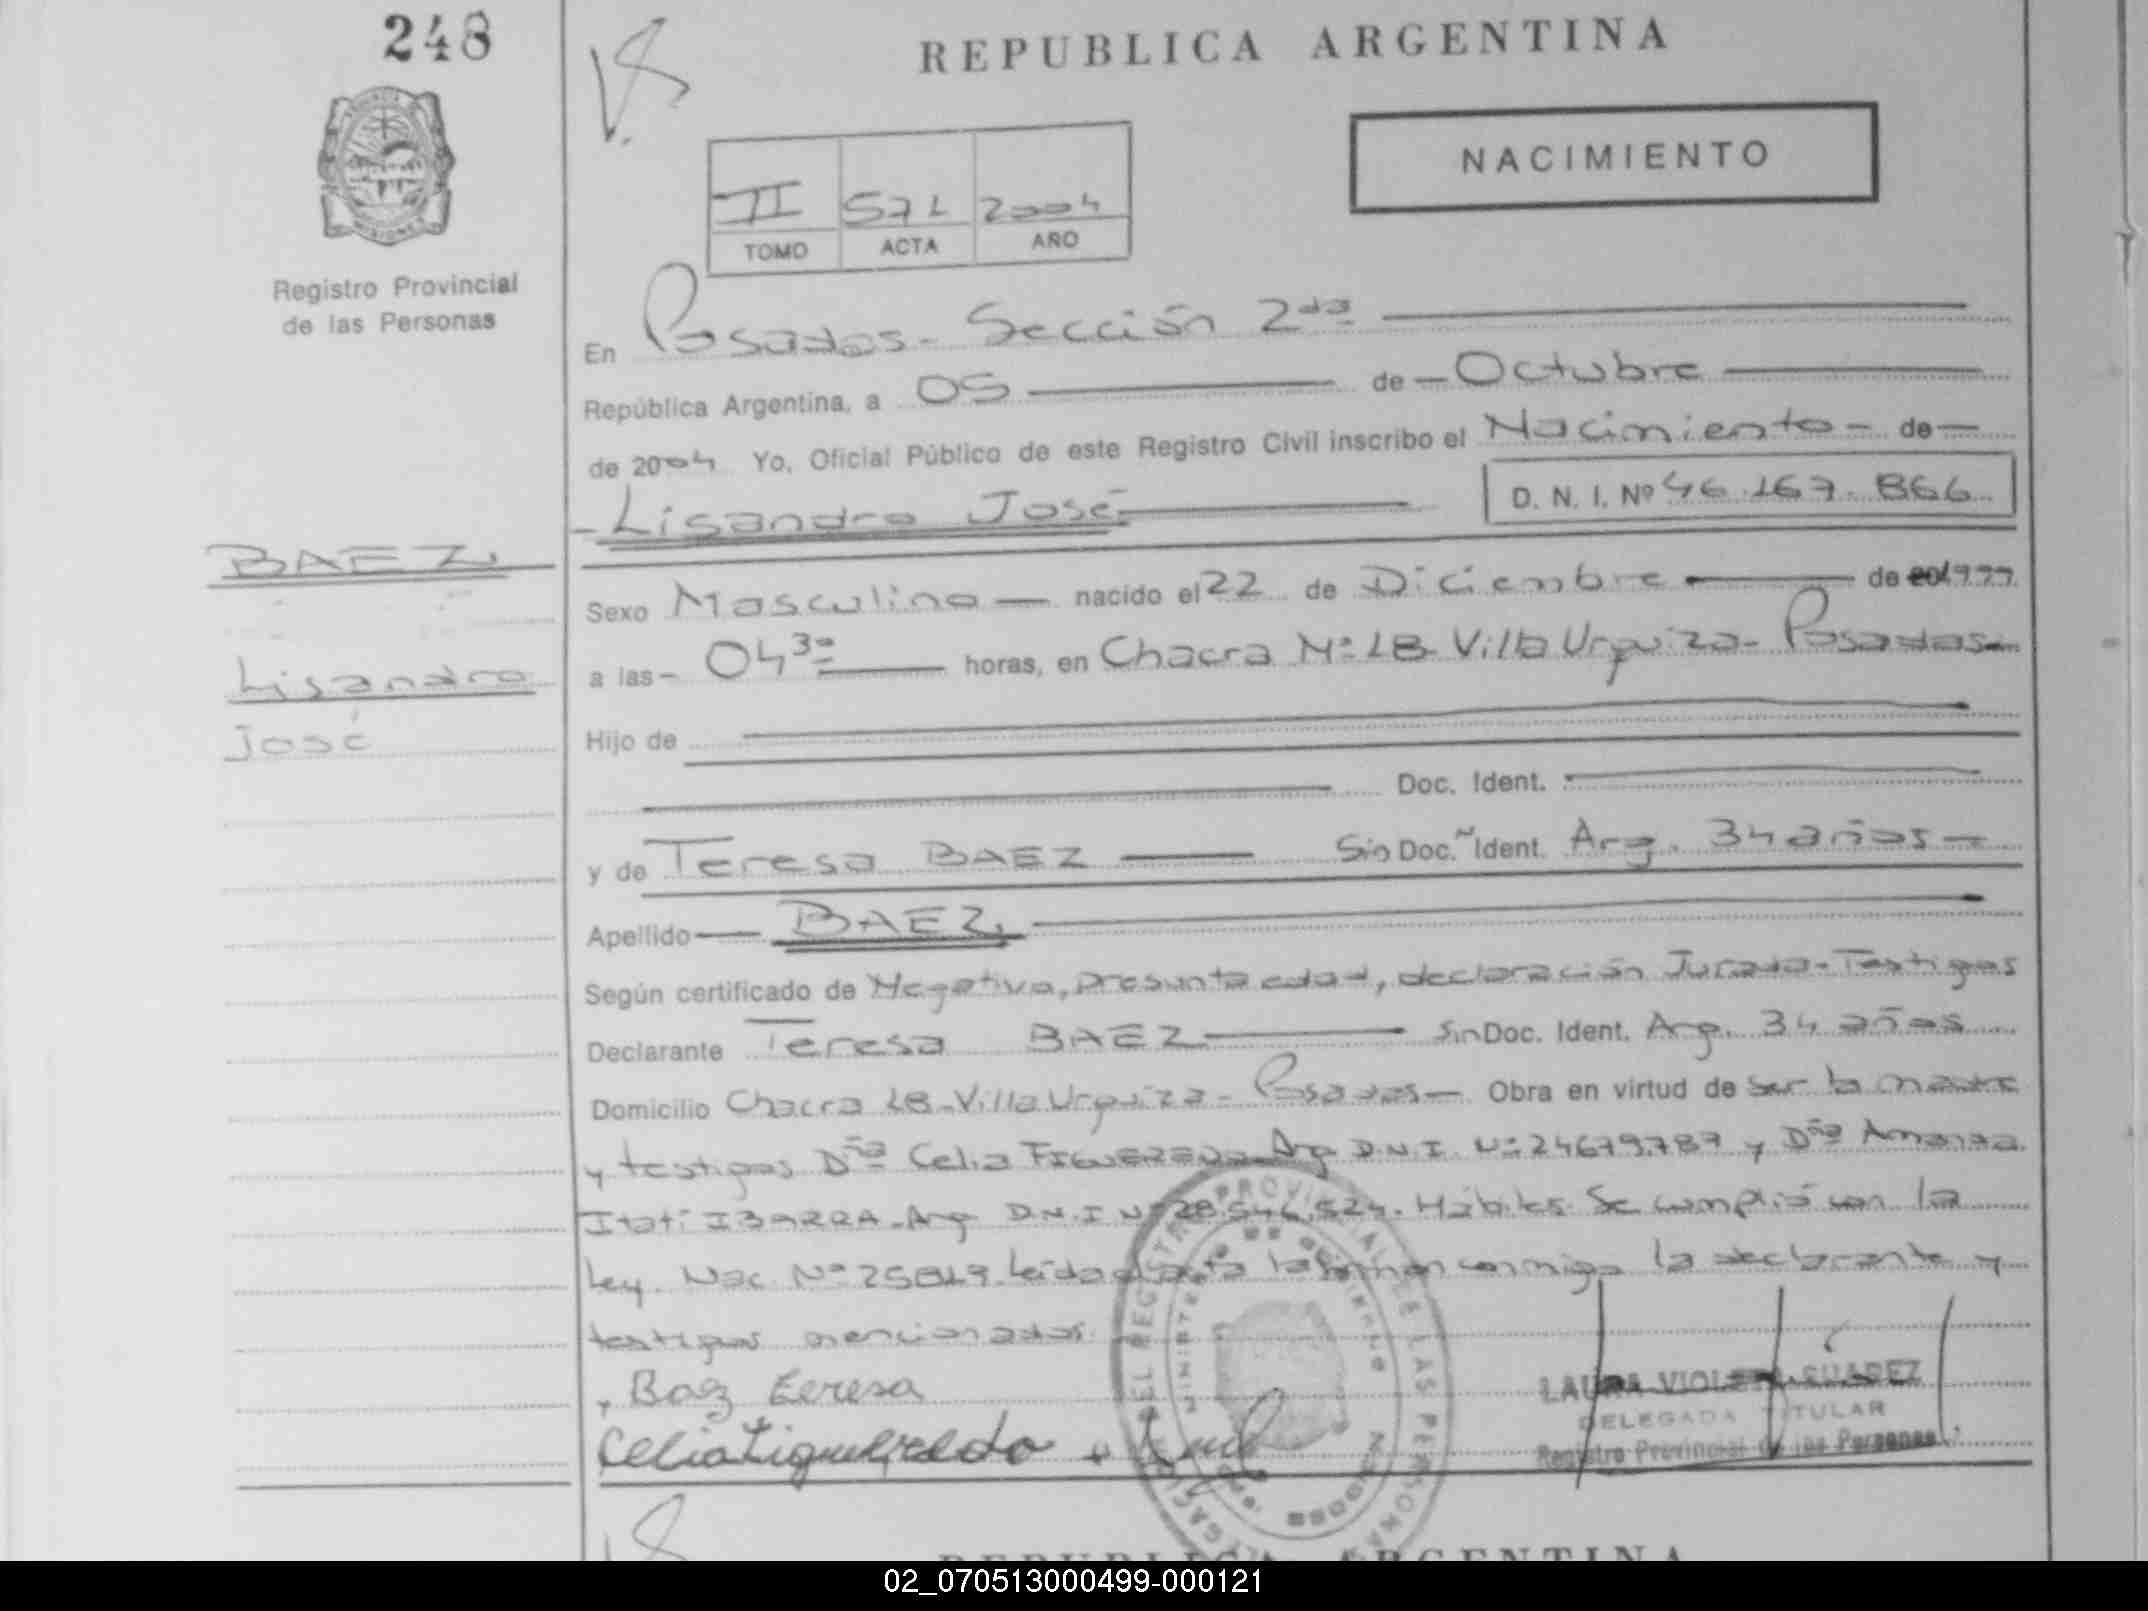 248
REPUBLICA ARGENTINA
NACIMIENTO
II 571 2004
TOMO ACTA AÑO
Registro Provincial
de las Personas
En Posadas - Sección 2da
República Argentina, a 05 de Octubre
de 2004 Yo, Oficial Público de este Registro Civil inscribo el Nacimiento de
Lisandro José D. N. I. Nº 46.167.866
BAEZ
Lisandro
José
Sexo Masculino nacido el 22 de Diciembre de 1999
a las 04 30 horas, en Chacra Nº 18 Villa Urquiza - Posadas
Hijo de
Doc. Ident.
y de Teresa BAEZ Sin Doc. Ident. Arg. 34 años
Apellido BAEZ
Según certificado de Negativa, presunta edad, declaración Jurada - Testigos
Declarante Teresa BAEZ Sin Doc. Ident. Arg. 34 años
Domicilio Chacra 18 - Villa Urquiza - Posadas Obra en virtud de ser la madre
y testigos Dña Celia FIGUEREDO Arg D.N.I. Nº 24679.787 y Dña Amanda
Itatí IBARRA - Arg D.N.I Nº 28.546.524. Hábiles. Se cumplió con la
Ley. Nac. Nº 25819. Leida el acta la firman conmigo la declarante y
testigos mencionados.
Baez Teresa
Celia Figueredo
LAURA VIOLETA SUAREZ
DELEGADA TITULAR
Registro Provincial de las Personas
REPUBLICA ARGENTINA
02_070513000499-000121